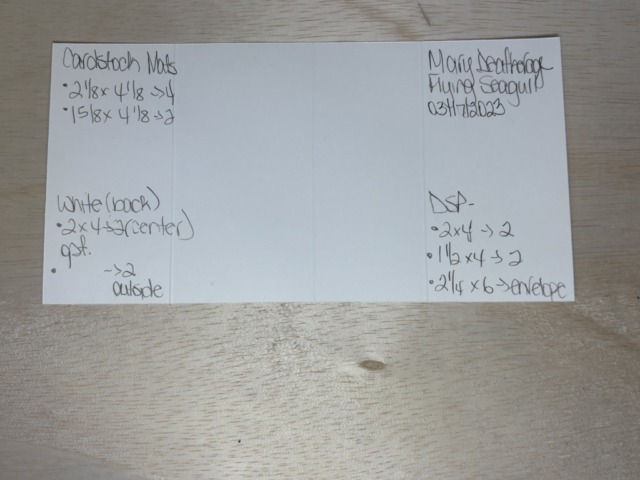 Cardstock Mats
• 2 1/8 x 4 1/8 → 4
• 1 5/8 x 4 1/8 → 2
White (back)
• 2 x 4 → 2 (center)
•
→ 2
outside
Mary Deatherage
Flying Seagull
03/17/2023
DSP-
• 2 x 4 → 2
• 1 1/2 x 4 → 2
• 2 1/4 x 6 → envelope